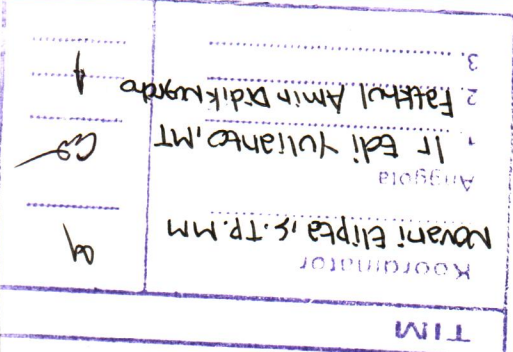 TIM
Koordinator
Novani Elipta, S.TP.MM
Anggota
1. Ir Edi Yulianto, MT
2. Fatkhul Amin Didik
3.